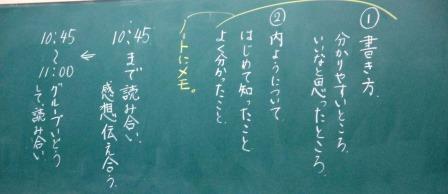 ① 書き方.
分かりやすいところ.
いいなと思ったところ.
② 内ようについて
はじめて知ったこと
よく分かったこと.
ノートにメモ。
10:45 まで 読み合い.
感想伝え合う.
⇐
10:45
〜
11:00
グループどうし
で読み合い